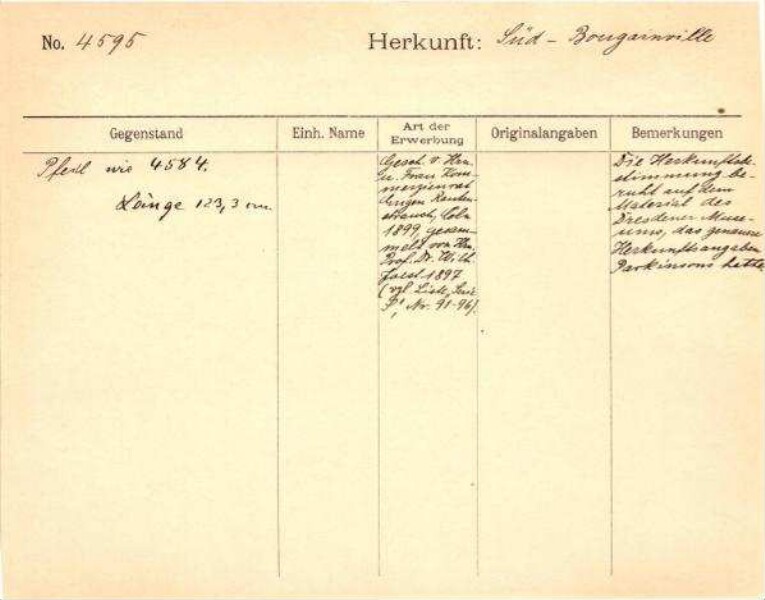 No. 4595
Herkunft: Süd - Bougainville
Gegenstand
Einh. Name
Art der
Erwerbung
Originalangaben
Bemerkungen
Pfeil wie 4584.
Länge 123,3 cm.
Gesch. v. Hrn.
u. Frau Kom-
merzienrat
Eugen Rauten-
strauch, Cöln
1899, gesam-
melt von Hrn.
Prof. Dr. Wilh.
Joest 1897
(vgl. Liste, Serie
P, Nr. 91-96).
Die Herkunftsbe-
stimmung be-
ruht auf dem
Material des
Dresdener Muse-
ums, das genauere
Herkunftsangaben
Parkinsons hatte.